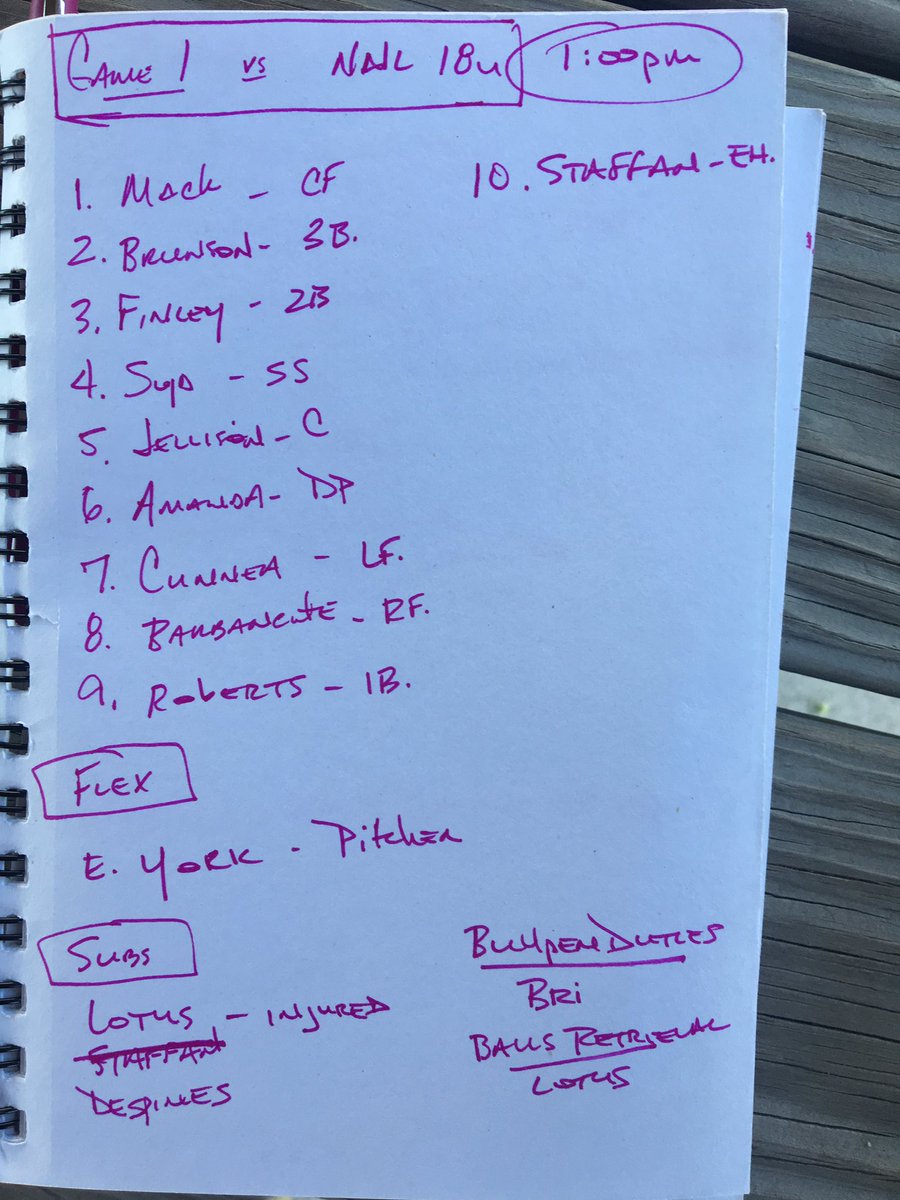 Game 1 vs NNL 18u 1:00pm
1. Mack - CF
2. Brunson - 3B.
3. Finley - 2B
4. Syd - SS
5. Jellison - C
6. Amanda - DP
7. Cunnea - LF.
8. - RF.
9. Roberts - 1B.
10. Staffan - EH.
Flex
E. York - Pitcher
Subs
Lotus - injured
Staffan
Despines
Bullpen Duties
Bri
Balls Retrieval
Lotus